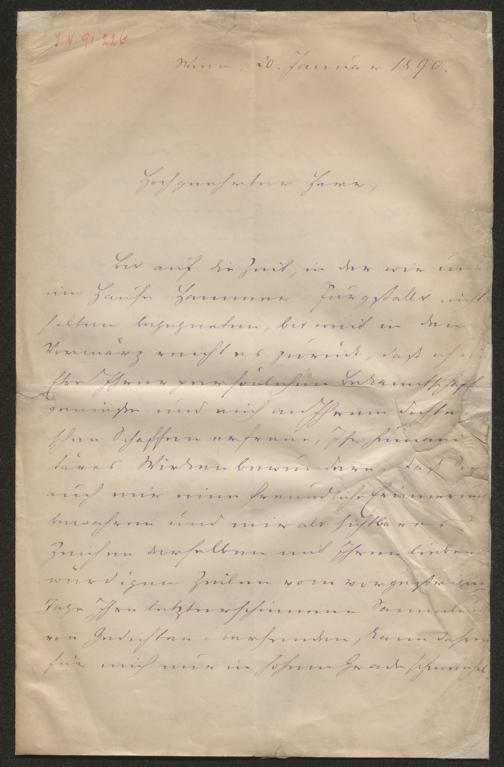 J.N. 91.226
Wien, 20. Januar 1890.
Hochgeehrter Herr,
Bis auf die Zeit, in der wir uns
im Hause Hammer-Purgstalls nicht
selten begegneten, bis weit in den
Vormärz reicht es zurück, daß ich
Ihrer persönlichen Bekanntschaft
genieße und mich an Ihrem dichteri
schen Schaffen erfreue, Ihr humani
täres Wirken bewundere. Daß Sie
auch mir eine freundliche Erinnerung
bewahren und mir als sichtbares
Zeichen derselben mit Ihren liebens
würdigen Zeilen vom vorgestrigen
Tage Ihre letzterschienene Sammlung
von Gedichten übersenden, kann daher
für mich nur in hohem Grade schmeichel